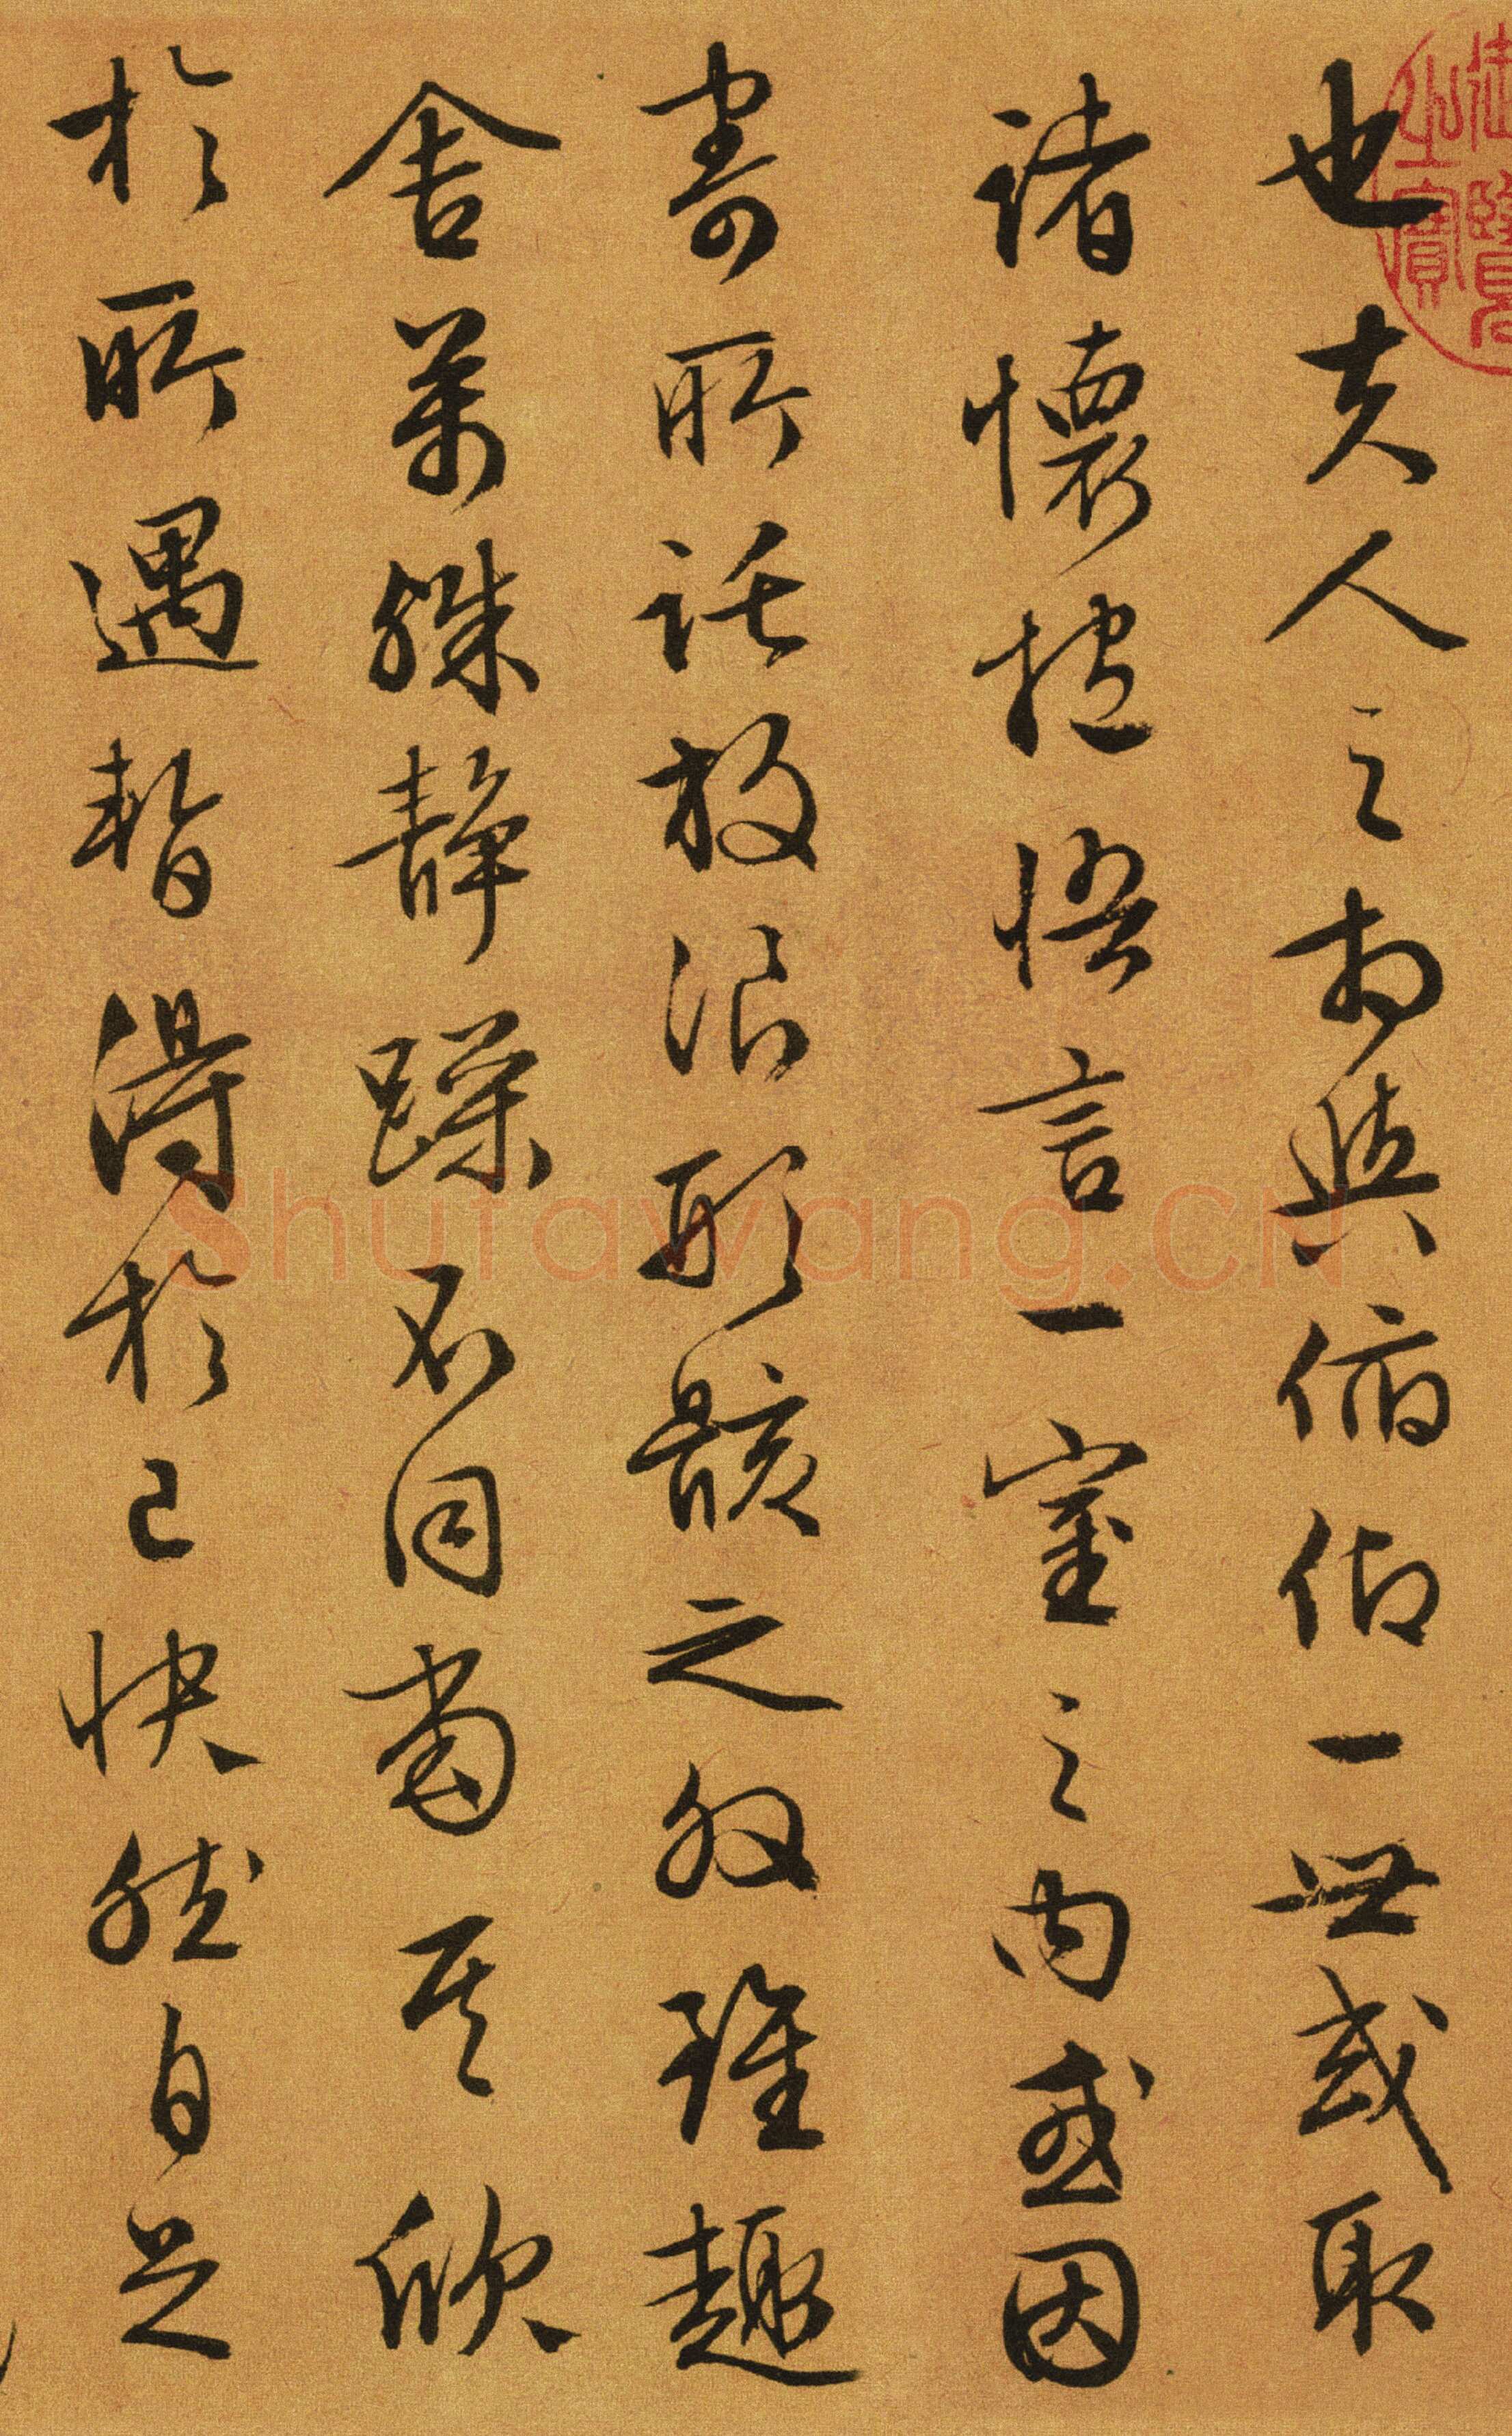 也夫人之相與俯仰一世或取
諸懷抱悟言一室之內或因
寄所託放浪形骸之外雖趣
舍萬殊靜躁不同當其欣
於所遇暫得於己快然自足
御覽之寶
Shufawang.CN